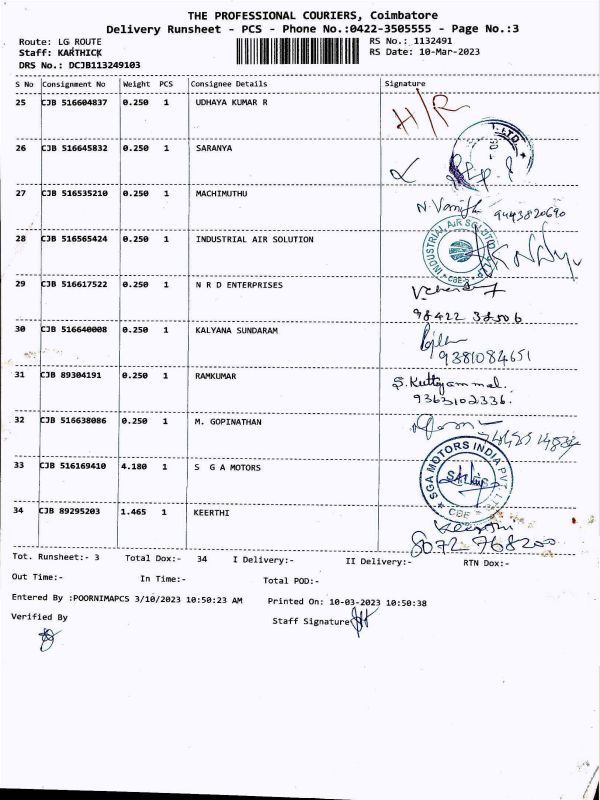 THE PROFESSIONAL COURIERS, Coimbatore
Delivery Runsheet - PCS - Phone No.:0422-3505555 - Page No.:3
Route: LG ROUTE RS No.: 1132491
Staff: KARTHICK RS Date: 10-Mar-2023
DRS No.: DCJB113249103
S No Consignment No Weight PCS Consignee Details Signature
25 CJB 516604837 0.250 1 UDHAYA KUMAR R H/R
26 CJB 516645832 0.250 1 SARANYA
27 CJB 516535210 0.250 1 MACHIMUTHU 9443820690
28 CJB 516565424 0.250 1 INDUSTRIAL AIR SOLUTION
29 CJB 516617522 0.250 1 N R D ENTERPRISES
98422 38506
30 CJB 516640008 0.250 1 KALYANA SUNDARAM
9381084651
31 CJB 89304191 0.250 1 RAMKUMAR S. Kuttoyammal.
9363102336.
32 CJB 516638086 0.250 1 M. GOPINATHAN
SGA MOTORS INDIA PVT. LTD
33 CJB 516169410 4.180 1 S G A MOTORS
CBE
34 CJB 89295203 1.465 1 KEERTHI Keerthi
8072 768200
Tot. Runsheet:- 3 Total Dox:- 34 I Delivery:- II Delivery:- RTN Dox:-
Out Time:- In Time:- Total POD:-
Entered By :POORNIMAPCS 3/10/2023 10:50:23 AM Printed On: 10-03-2023 10:50:38
Verified By Staff Signature